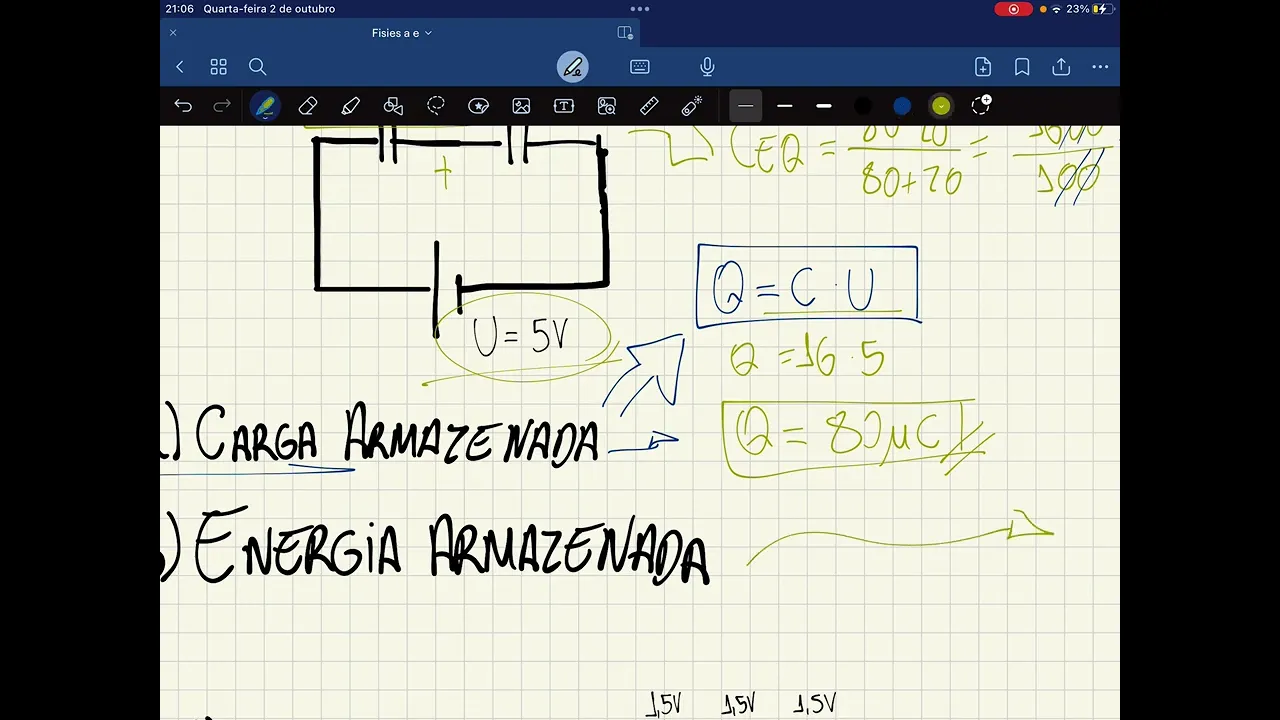 21:06 Quarta-feira 2 de outubro
23%
Fisies a e
+
CEQ =
80+20
=
100
U = 5V
Q = C · U
Q = 16 · 5
Q = 80μC
) CARGA ARMAZENADA
) ENERGIA ARMAZENADA
1,5V 1,5V 1,5V